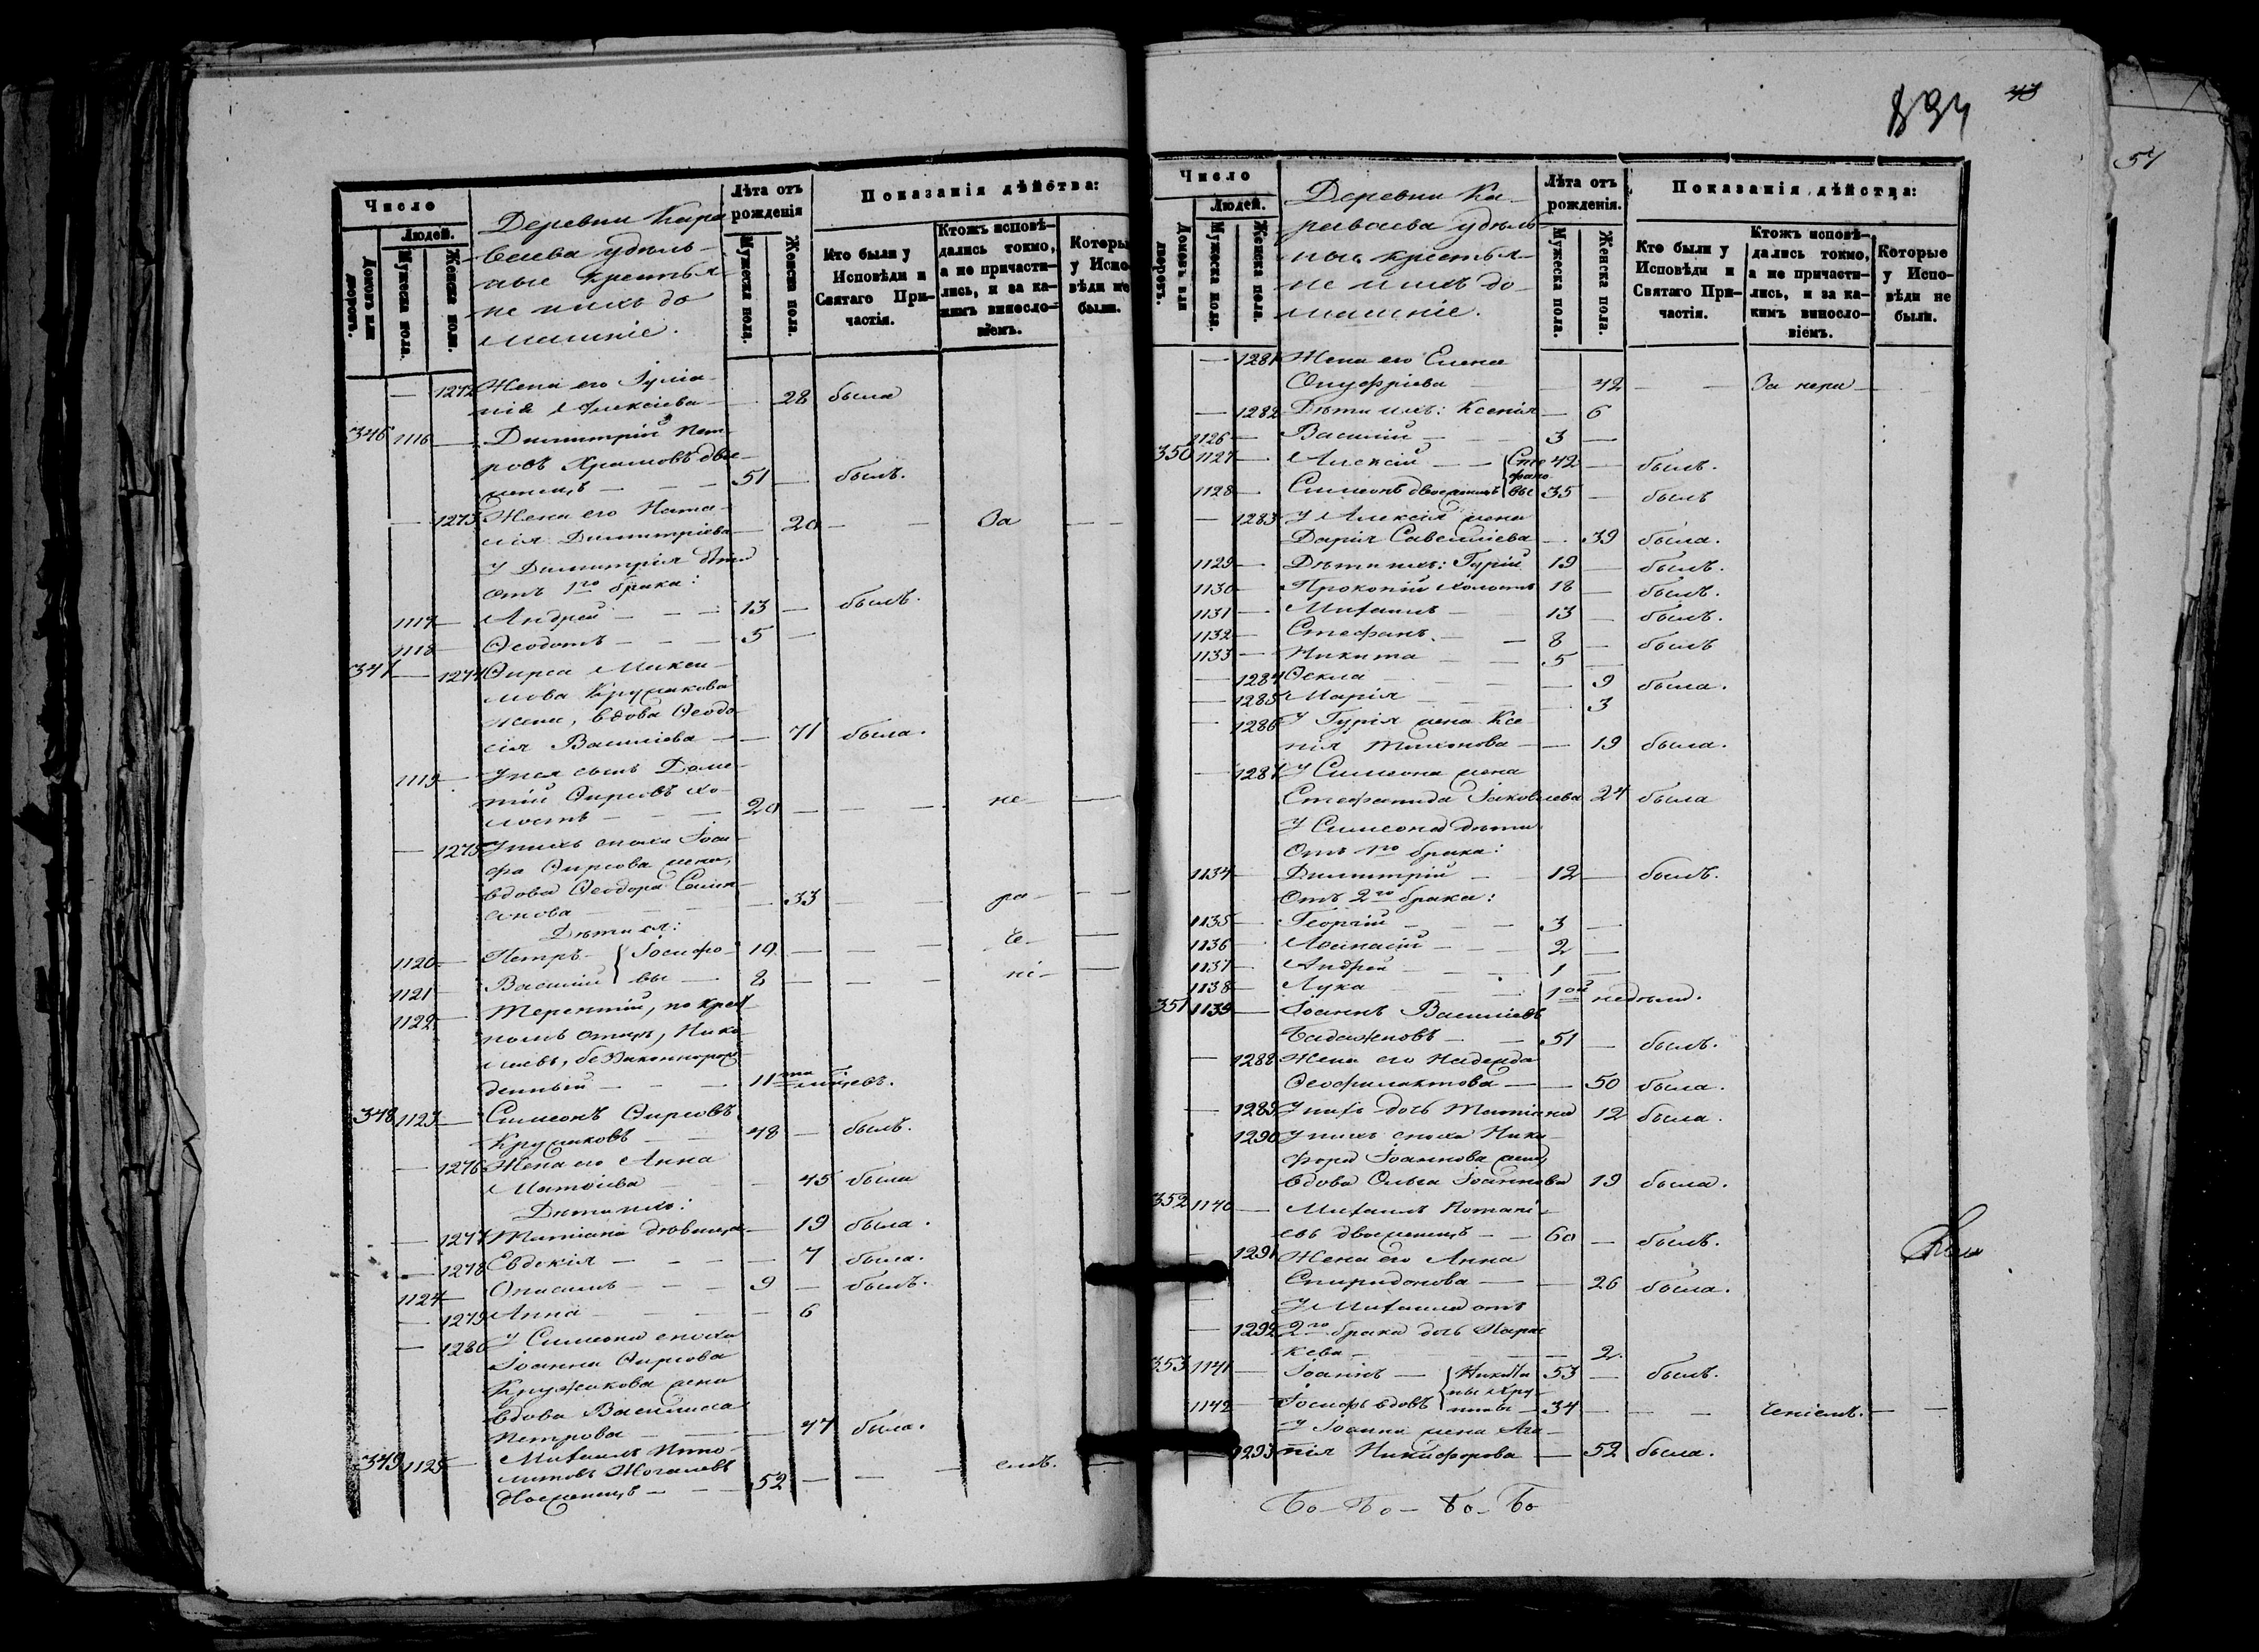 Число
Людей.
Домовъ или дворовъ.
Мужеска пола.
Женска пола.
Деревни Кара
ваева удѣль-
ные крестья-
не и ихъ до
машніе.
Лѣта отъ рожденія
Мужеска пола.
Женска пола.
Показанія дѣйства:
Кто были у Исповѣди и Святаго При-частія.
Ктожъ исповѣ-дались токмо, а не причасти-лись, и за ка-кимъ винословіемъ.
Которы у Испо вѣди не были.
— 1272 Жена его Іулiа-
нія Алексіева — 28 была
346 1116 — Димитрій Пет-
ровъ Храмовъ двое-
женецъ — — — 51 — былъ.
— 1273 Жена его Ната-
лія Димитріева — 20 — — За — —
У Димитрія дѣти
отъ 1го брака:
1117 — Андрей — — — 13 — былъ.
1118 — Ѳеодотъ — — — 5 —
347 — 1274 Ѳирса Макси-
мова Кружакова
жена, вдова Ѳеодо
сія Василіева — — 71 была.
1119 — У нея сынъ Доме-
тій Ѳирсовъ хо-
лостъ — — — 20 — — — не — —
— 1275 У нихъ сноха Іоси-
фа Ѳирсова жена,
вдова Ѳеодора Симе-
онова — — — 33 — — ра — —
Дѣти ея:
1120 — Петръ — Іосифо- 19 — — — че — —
1121 — Василій вы — 8 — — — ні — —
1122 — Терентій, по крест
номъ отцѣ, Нико
лаевъ, беззаконнорож
денный — — — 11ти мѣсяцевъ.
348 1123 — Симеонъ Ѳирсовъ
Кружаковъ — — 48 — былъ.
— 1276 Жена его Анна
Матѳіева — — 45 была
Дѣти ихъ:
— 1277 Татіана дѣвица — 19 была.
— 1278 Евдокія — — — — 7 была.
1124 — Онисимъ — — 9 — былъ.
— 1279 Анна — — — — 6
— 1280 У Симеона сноха
Іоанна Ѳирсова
Кружакова жена
вдова Василиса
Петрова — — — 47 была.
349 1125 — Михаилъ Иппо-
литовъ Жогалевъ
двоеженецъ — — — 52 — — — емъ. —
894 43
54
Число
Людей.
Домовъ или дворовъ.
Мужеска пола.
Женска пола.
Деревни Ка-
раваева удѣль-
ные крестья-
не и ихъ до-
машніе.
Лѣта отъ рожденія.
Мужеска пола.
Женска пола.
Показанія дѣйства:
Кто были у Исповѣди и Святаго При-частія.
Ктожъ исповѣ-дались токмо, а не причасти-лись, и за ка-кимъ винословіемъ.
Которые у Испо-вѣди не были.
— 1281 Жена его Елена
Онуфріева — — 42 — — За нера —
— 1282 Дѣти ихъ: Ксенія — 6
1126 — Василій — — — 3 —
350 1127 — Алексій — — Сте 42 — былъ.
фано
1128 — Симеонъ двоеженецъ вы 35 — былъ
— 1283 У Алексія жена
Дарія Савеліева — 39 была.
1129 — Дѣти ихъ: Гурій 19 — былъ.
1130 — Прокопій холостъ 18 — былъ.
1131 — Михаилъ — 13 — былъ.
1132 — Стефанъ. — — 8 — былъ
1133 — Никита — — 5 —
— 1284 Ѳекла — — — — 9 была.
— 1285 Марія — — — 3
— 1286 У Гурія жена Ксе
нія Тихонова — — 19 была.
— 1287 У Симеона жена
Стефанида Іаковлева 24 была
У Симеона дѣти
Отъ 1го брака:
1134 — Димитрій — — 12 — былъ.
Отъ 2го брака:
1135 — Георгій — — — 3 —
1136 — Аѳанасій — — 2 —
1137 — Андрей — — — 1 —
1138 — Лука — — — 1ой недѣли.
351 1139 — Іоаннъ Василіевъ
Бадажковъ — — 51 — былъ.
— 1288 Жена его Надежда
Ѳеофилактова — — 50 была.
— 1289 У нихъ дочь Татіана 12 была.
1290 У нихъ сноха Ники-
фора Іоаннова жена,
вдова Ольга Іоаннова 19 была.
352 1140 — Михаилъ Потапі-
евъ двоеженецъ — — 60 — былъ.
— 1291 Жена его Анна
Спиридонова — — 26 была.
У Михаила отъ
— 1292 2го брака дочь Парас
кева — — — — 2.
353 1141 — Іоаннъ — Никити 53 — былъ.
ны
1142 — Іосифъ вдовъ 34 — — — ченіемъ. — —
У Іоанна жена Ага-
1293 пія Никифорова — 52 была.
Бо — Бо — Бо — Бо